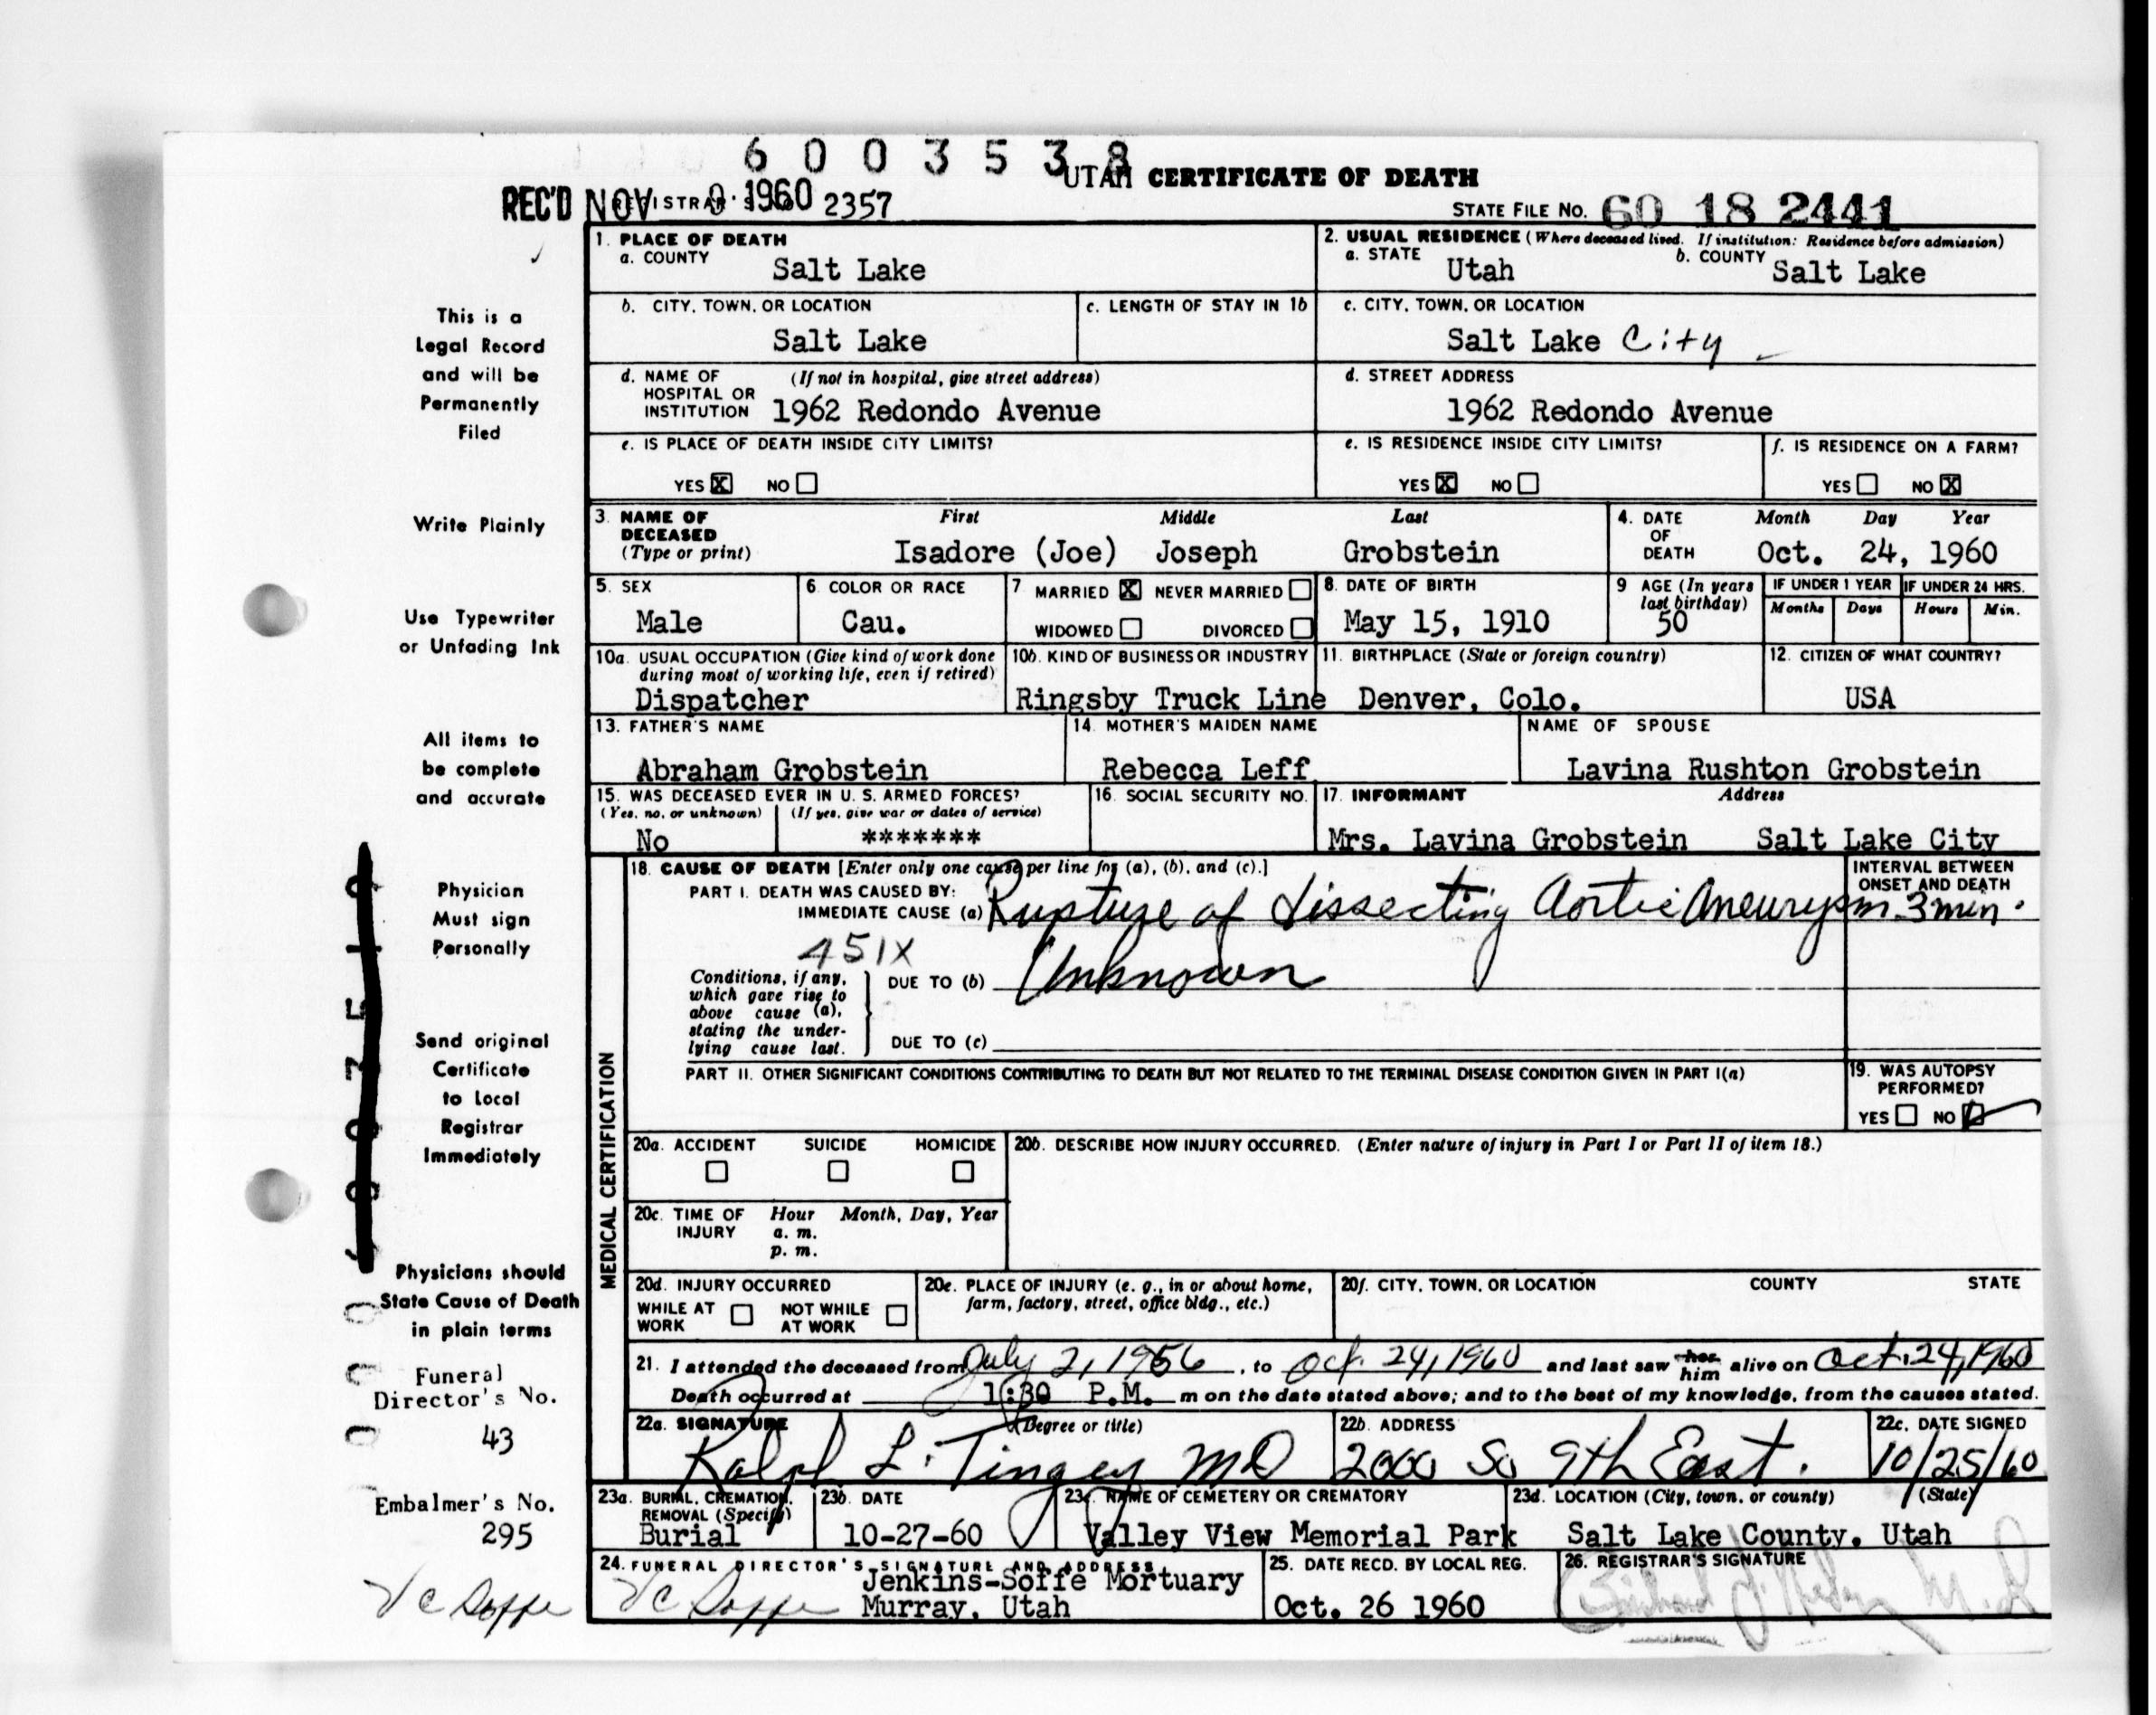 6 0 0 3 5 3 8
UTAH CERTIFICATE OF DEATH
REC'D NOV 9 1960 2357
STATE FILE NO. 60 18 2441
1. PLACE OF DEATH
a. COUNTY
Salt Lake
2. USUAL RESIDENCE (Where deceased lived. If institution: Residence before admission)
a. STATE
Utah
b. COUNTY
Salt Lake
b. CITY, TOWN, OR LOCATION
Salt Lake
c. LENGTH OF STAY IN 1b
c. CITY, TOWN, OR LOCATION
Salt Lake City
d. NAME OF HOSPITAL OR INSTITUTION
(If not in hospital, give street address)
1962 Redondo Avenue
d. STREET ADDRESS
1962 Redondo Avenue
e. IS PLACE OF DEATH INSIDE CITY LIMITS?
YES X NO
e. IS RESIDENCE INSIDE CITY LIMITS?
YES X NO
f. IS RESIDENCE ON A FARM?
YES NO X
3. NAME OF DECEASED
(Type or print)
First Middle Last
Isadore (Joe) Joseph Grobstein
4. DATE OF DEATH
Month Day Year
Oct. 24, 1960
5. SEX
Male
6. COLOR OR RACE
Cau.
7 MARRIED X NEVER MARRIED
WIDOWED DIVORCED
8. DATE OF BIRTH
May 15, 1910
9 AGE (In years last birthday)
50
IF UNDER 1 YEAR
Months Days
IF UNDER 24 HRS.
Hours Min.
10a. USUAL OCCUPATION (Give kind of work done during most of working life, even if retired)
Dispatcher
10b. KIND OF BUSINESS OR INDUSTRY
Ringsby Truck Line
11. BIRTHPLACE (State or foreign country)
Denver, Colo.
12. CITIZEN OF WHAT COUNTRY?
USA
13. FATHER'S NAME
Abraham Grobstein
14. MOTHER'S MAIDEN NAME
Rebecca Leff
NAME OF SPOUSE
Lavina Rushton Grobstein
15. WAS DECEASED EVER IN U. S. ARMED FORCES?
(Yes, no, or unknown) (If yes, give war or dates of service)
No *******
16. SOCIAL SECURITY NO.
17. INFORMANT Address
Mrs. Lavina Grobstein Salt Lake City
MEDICAL CERTIFICATION
18. CAUSE OF DEATH [Enter only one cause per line for (a), (b), and (c).]
PART I. DEATH WAS CAUSED BY:
IMMEDIATE CAUSE (a) Rupture of dissecting Aortic Aneurysm
INTERVAL BETWEEN ONSET AND DEATH
3 min.
451X
Conditions, if any, which gave rise to above cause (a), stating the underlying cause last.
DUE TO (b) Unknown
DUE TO (c)
PART II. OTHER SIGNIFICANT CONDITIONS CONTRIBUTING TO DEATH BUT NOT RELATED TO THE TERMINAL DISEASE CONDITION GIVEN IN PART I(a)
19. WAS AUTOPSY PERFORMED?
YES NO
20a. ACCIDENT SUICIDE HOMICIDE
20b. DESCRIBE HOW INJURY OCCURRED. (Enter nature of injury in Part I or Part II of item 18.)
20c. TIME OF INJURY
Hour Month, Day, Year
a. m.
p. m.
20d. INJURY OCCURRED
WHILE AT WORK NOT WHILE AT WORK
20e. PLACE OF INJURY (e. g., in or about home, farm, factory, street, office bldg., etc.)
20f. CITY, TOWN, OR LOCATION COUNTY STATE
21. I attended the deceased from July 2, 1956, to Oct. 24, 1960 and last saw her him alive on Oct. 24, 1960
Death occurred at 1:30 P.M. m on the date stated above; and to the best of my knowledge, from the causes stated.
22a. SIGNATURE (Degree or title)
Ralph L. Tingey MD
22b. ADDRESS
2000 So 9th East.
22c. DATE SIGNED
10/25/60
23a. BURIAL, CREMATION, REMOVAL (Specify)
Burial
23b. DATE
10-27-60
23c. NAME OF CEMETERY OR CREMATORY
Valley View Memorial Park
23d. LOCATION (City, town, or county) (State)
Salt Lake County, Utah
24. FUNERAL DIRECTOR'S SIGNATURE AND ADDRESS
V C Soffe
Jenkins-Soffe Mortuary
Murray, Utah
25. DATE RECD. BY LOCAL REG.
Oct. 26 1960
26. REGISTRAR'S SIGNATURE
This is a
Legal Record
and will be
Permanently
Filed
Write Plainly
Use Typewriter
or Unfading Ink
All items to
be complete
and accurate
Physician
Must sign
Personally
Send original
Certificate
to Local
Registrar
Immediately
Physicians should
State Cause of Death
in plain terms
Funeral
Director's No.
43
Embalmer's No.
295
V C Soffe